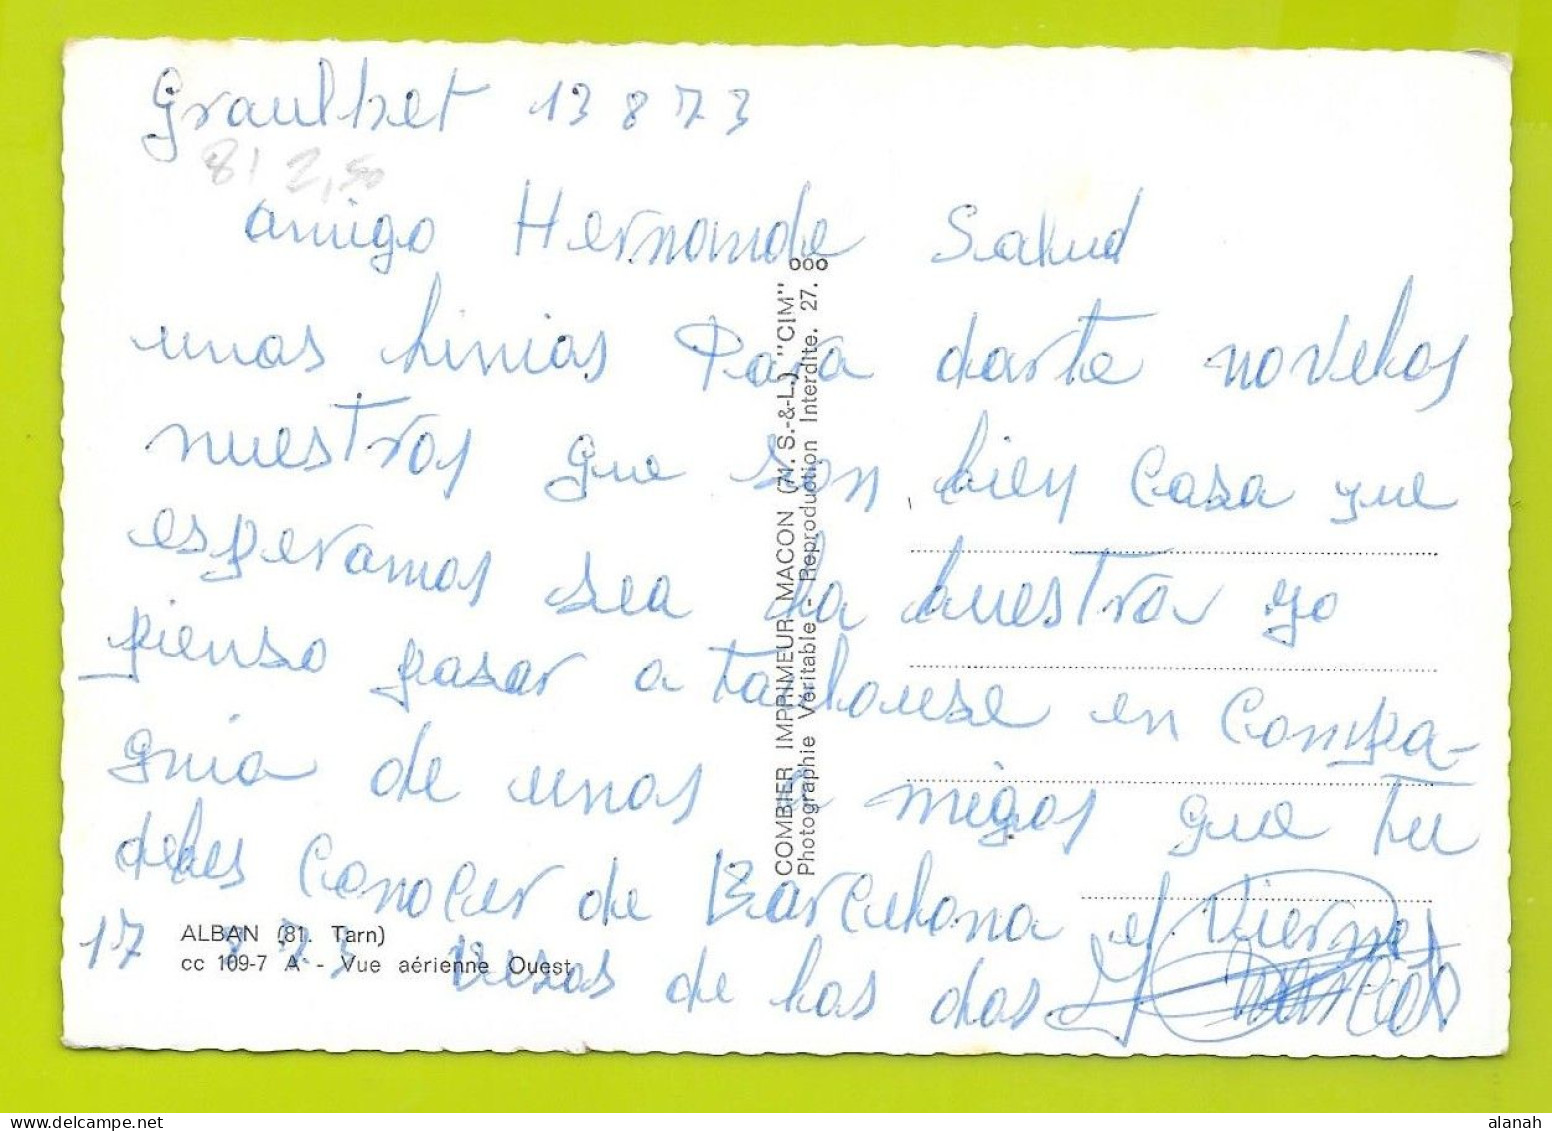 Graulhet 13 8 73
81 2,50
amigo Hernande Salud
unas linias Para darte novelas
nuestras que son bien Casa que
esperamos sea la buestra yo
pienso pasar a toulouse en Compa-
guia de unos amigos que tu
debes Conocer de Barcelona el Viernes
17 8 73 Besos de las dos
ALBAN (81. Tarn)
cc 109-7 A - Vue aérienne Ouest
COMBIER IMPRIMEUR MACON (71. S.-&-L.) "CIM"
Photographie Véritable - Reproduction Interdite. 27. ooo
alanah